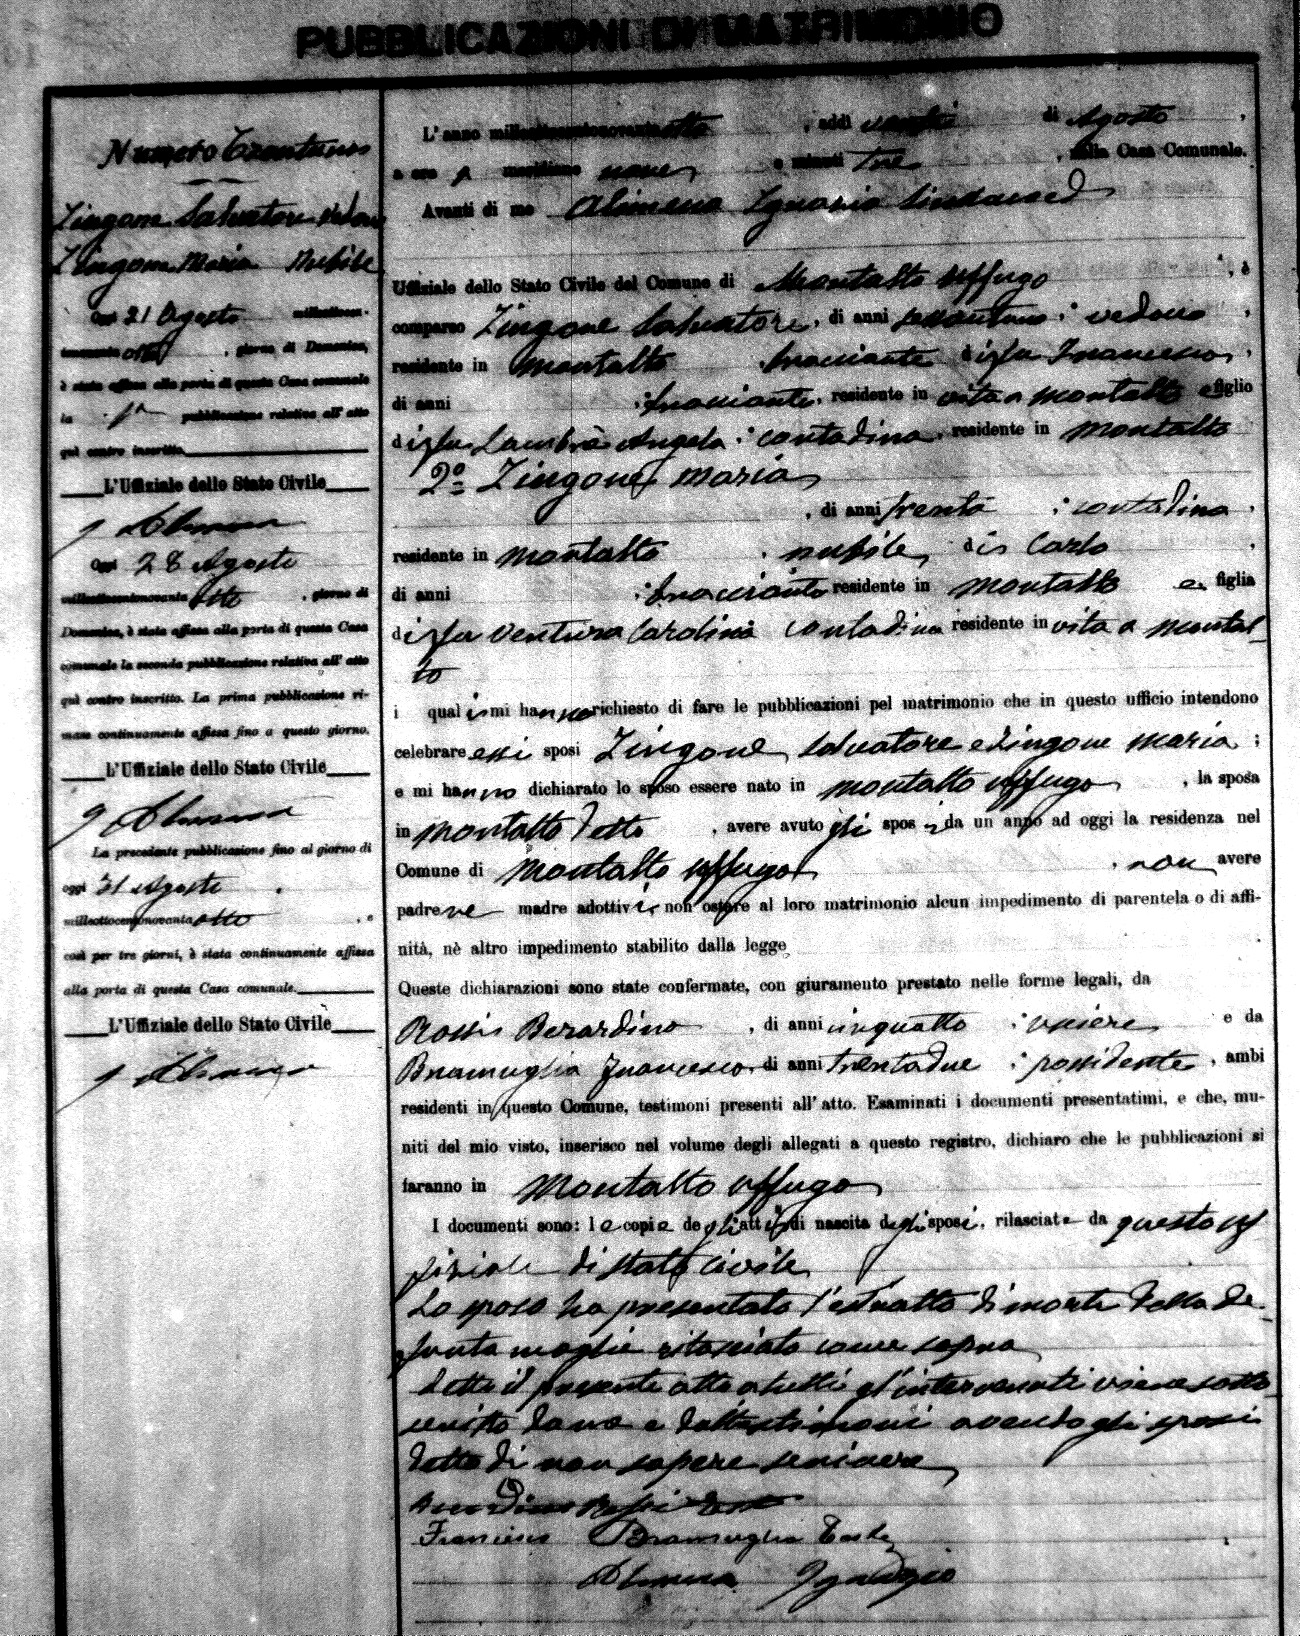 PUBBLICAZIONI DI MATRIMONIO
Numero Trentuno
Zingone Salvatore vedovo
Zingone Maria Nubile
Oggi 21 Agosto milleottocen-
tonovanta otto, giorno di Domenica,
è stata affissa alla porta di questa Casa comunale
la 1ª pubblicazione relativa all' atto
quì contro inscritto.
L'Uffiziale dello Stato Civile
Oggi 28 Agosto
milleottocentonovanta otto, giorno di
Domenica, è stata affissa alla porta di questa Casa
comunale la seconda pubblicazione relativa all' atto
quì contro inscritto. La prima pubblicazione ri-
mase continuamente affissa fino a questo giorno.
L'Uffiziale dello Stato Civile
La precedente pubblicazione fino al giorno di
oggi 31 Agosto
milleottocentonovanta otto, e
così per tre giorni, è stata continuamente affissa
alla porta di questa Casa comunale.
L'Uffiziale dello Stato Civile
L'anno milleottocentonovanta otto, addì venti di Agosto,
a ore meridiane nove e minuti tre, nella Casa Comunale.
Avanti di me Alimena Ignazio Sindaco
Uffiziale dello Stato Civile del Comune di Montalto Uffugo, è
comparso Zingone Salvatore, di anni vedovo,
residente in Montalto bracciante di fu Francesco,
di anni bracciante, residente in vita a Montalto e figlio
di fu Angela contadina, residente in Montalto
2º Zingone Maria
, di anni trenta contadina,
residente in Montalto, nubile, di Carlo,
di anni bracciante residente in Montalto e figlia
di fu Ventura Carolina contadina residente in vita a Montal-
to
i quali mi hanno richiesto di fare le pubblicazioni pel matrimonio che in questo ufficio intendono
celebrare essi sposi Zingone Salvatore e Zingone Maria;
e mi hanno dichiarato lo sposo essere nato in Montalto Uffugo, la sposa
in Montalto detto, avere avuto gli sposi da un anno ad oggi la residenza nel
Comune di Montalto Uffugo, non avere
padre ne madre adottivi, non ostare al loro matrimonio alcun impedimento di parentela o di affi-
nità, nè altro impedimento stabilito dalla legge
Queste dichiarazioni sono state confermate, con giuramento prestato nelle forme legali, da
Rossi Berardino, di anni usciere e da
Bramuglia Francesco, di anni trentadue possidente, ambi
residenti in questo Comune, testimoni presenti all' atto. Esaminati i documenti presentatimi, e che, mu-
niti del mio visto, inserisco nel volume degli allegati a questo registro, dichiaro che le pubblicazioni si
faranno in Montalto Uffugo
I documenti sono: le copie degli atti di nascita degli sposi, rilasciate da questo uf
fiziale di stato civile
Lo sposo ha presentato l'estratto di morte della de-
funta moglie rilasciato come sopra
Letto il presente atto a tutti gl'intervenuti viene sotto-
scritto da me e dai testimoni avendo gli sposi
detto di non sapere scrivere
Berardino Rossi Teste
Francesco Bramuglia Teste
Alimena Ignazio